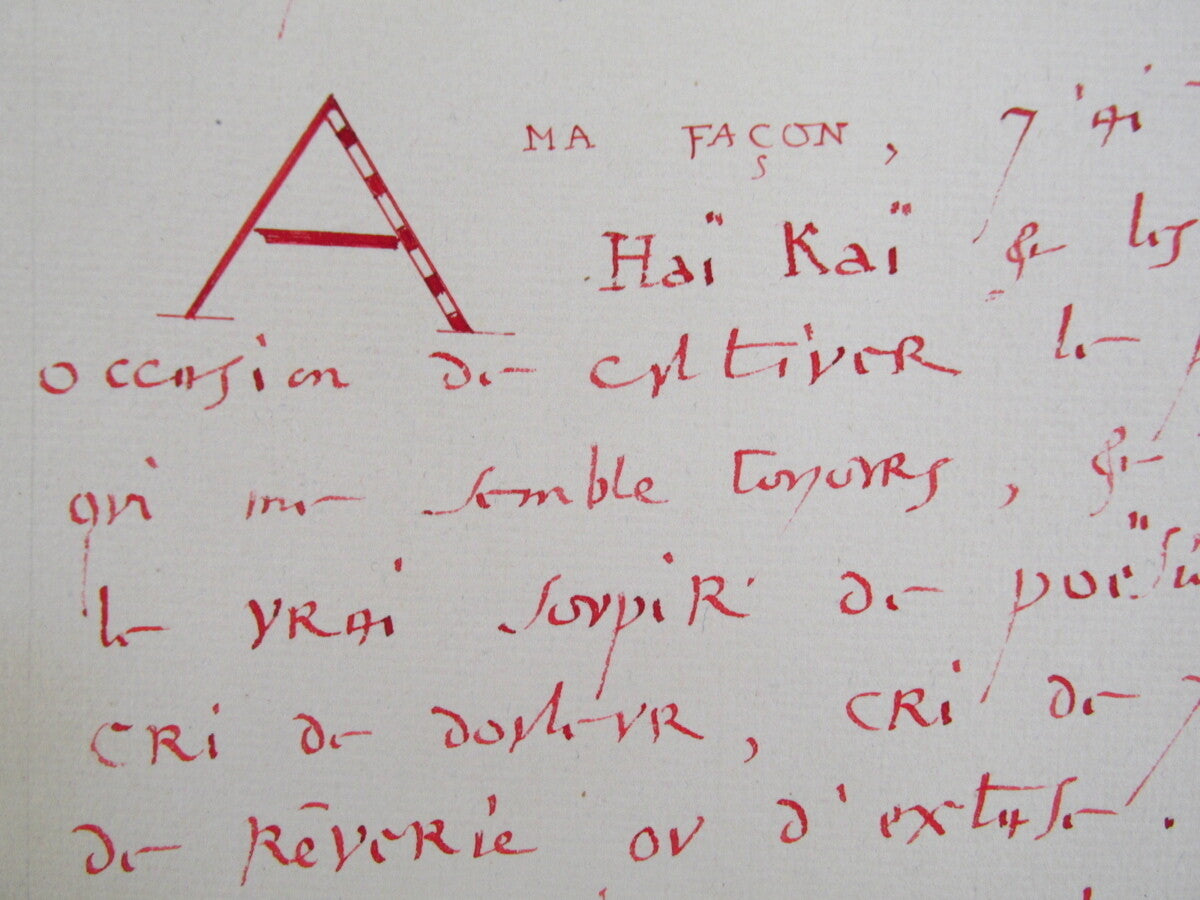 A MA FAÇON, j'ai
Haï Kaï & les
occasion de cultiver le
qui me semble toujours, &
le vrai soupir de poësie
cri de douleur, cri de
de rêverie ou d'extase.